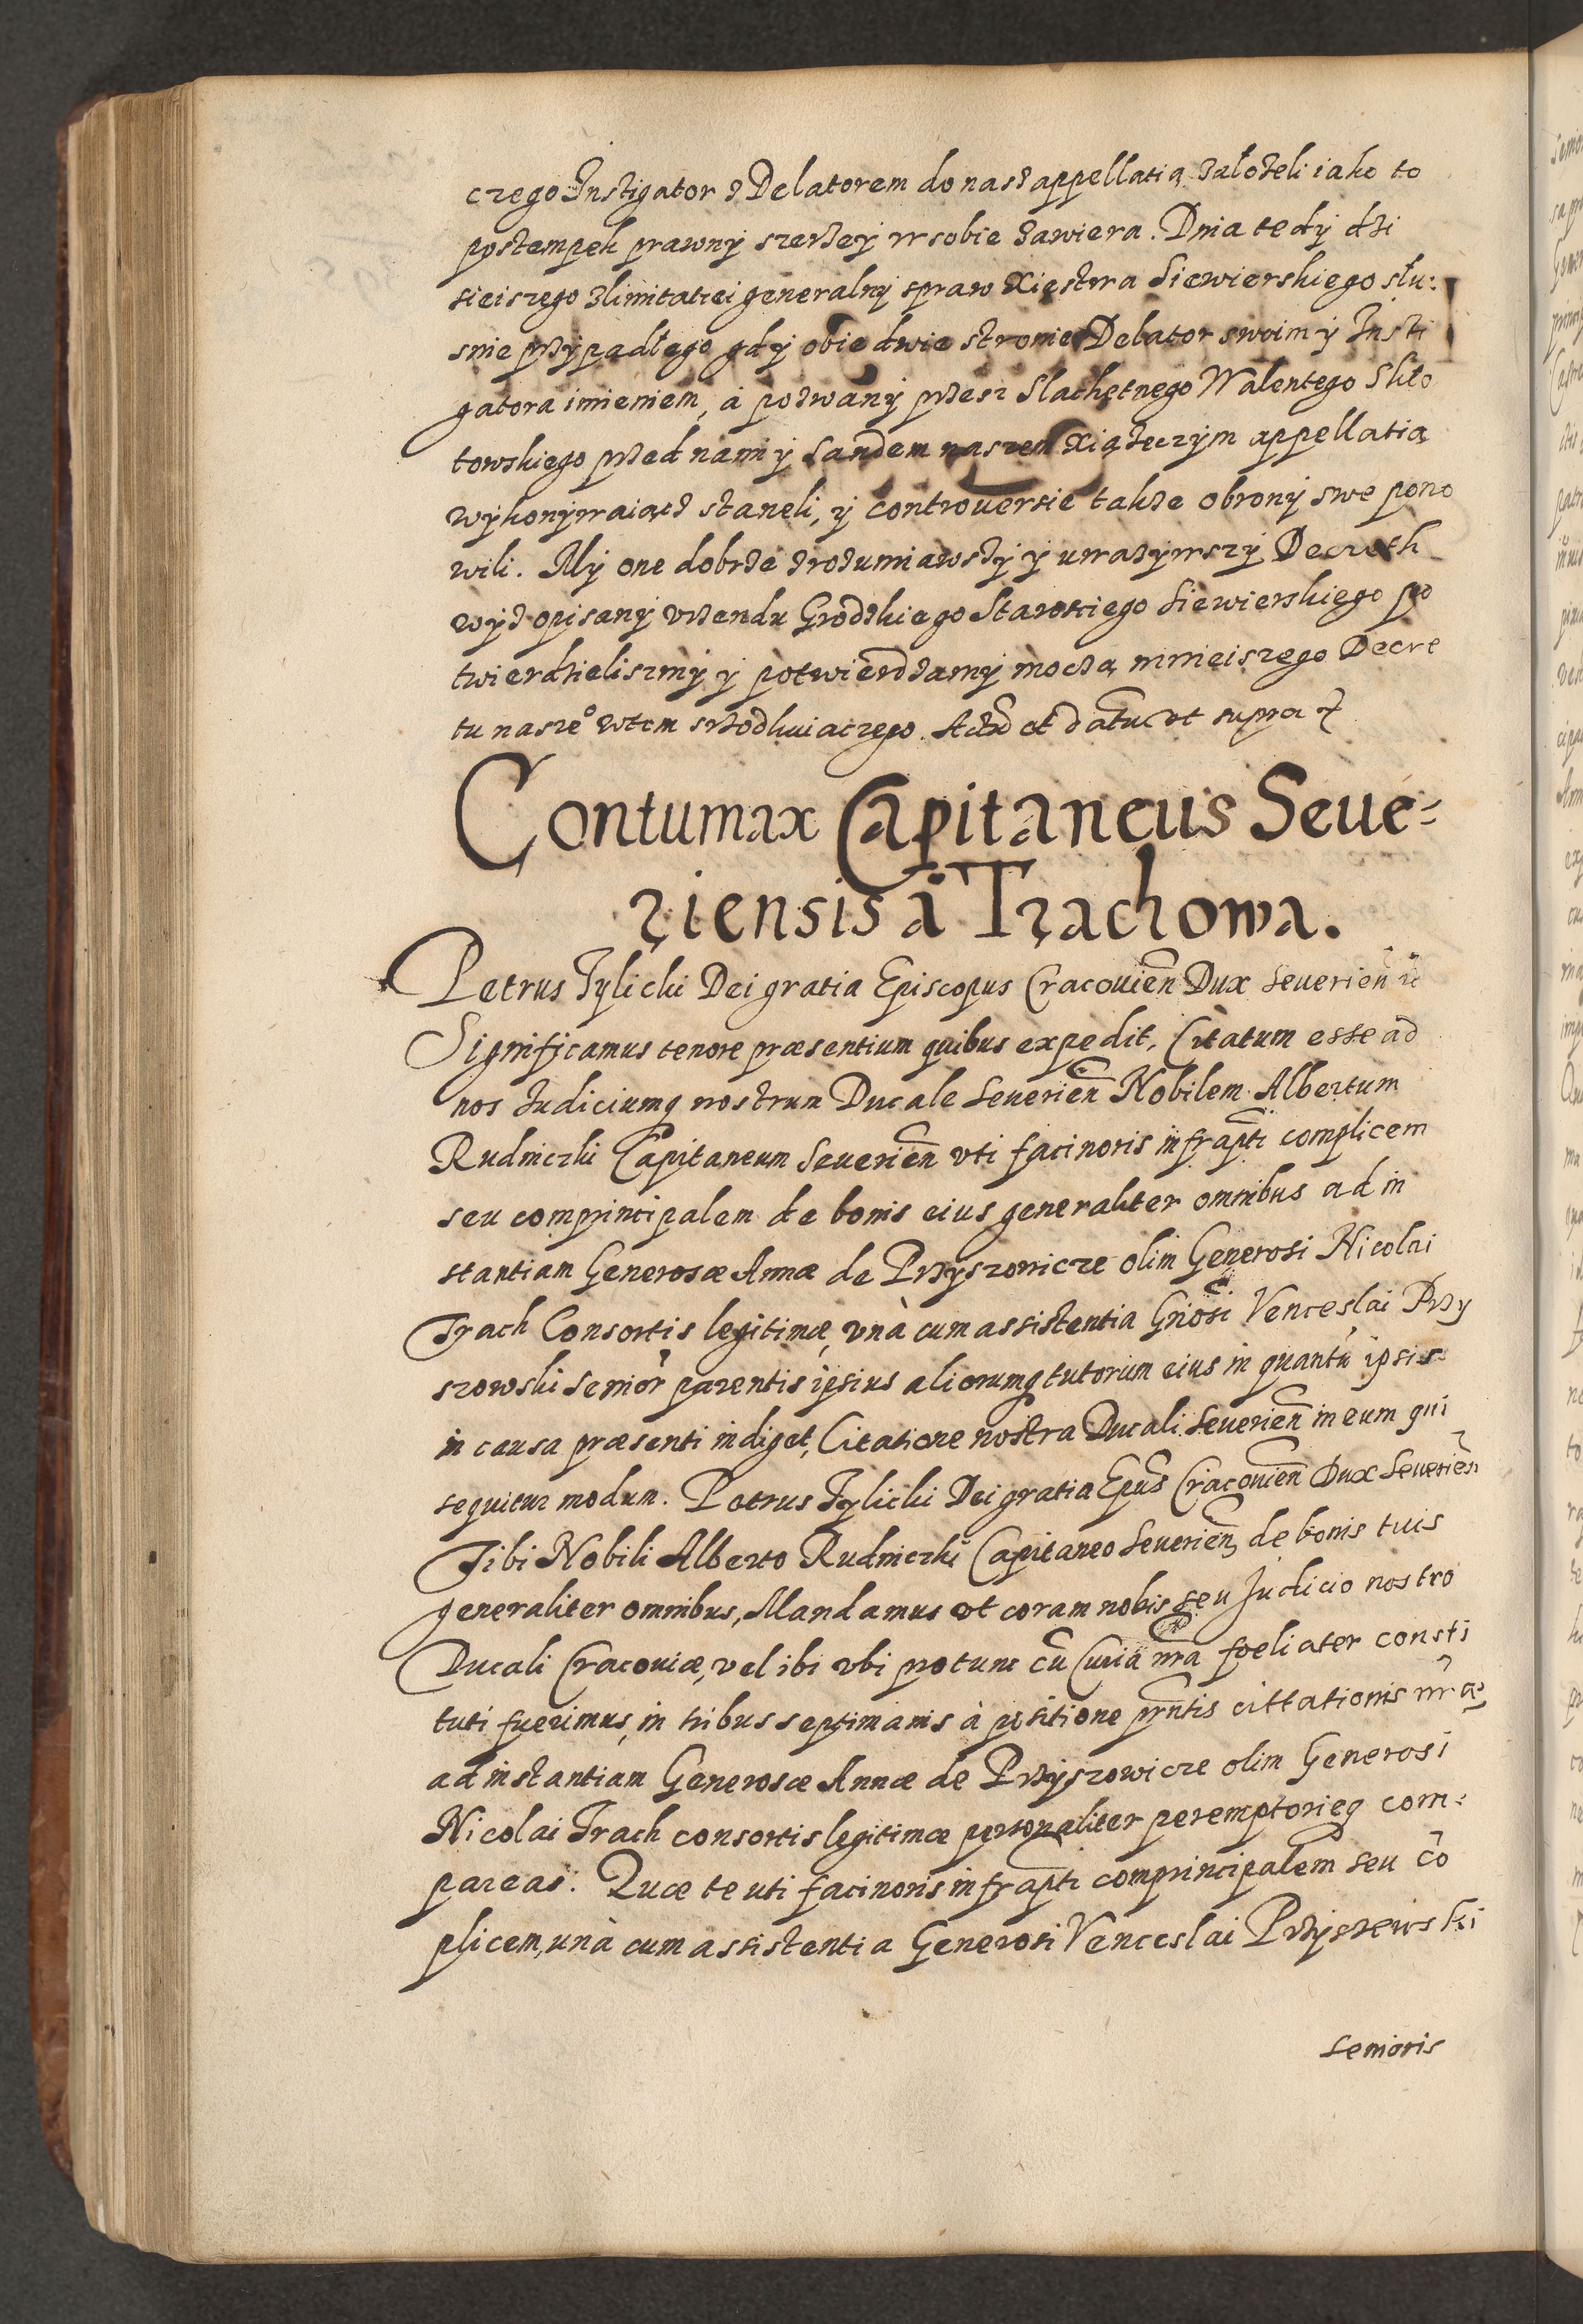 czego Instigator z Delatorem do nasz appellatią założeli iako to
postempek prawny szerzey w sobie zawiera. Dnia tedy dzi
sieiszego z limitatiei generalny spraw Xięstwa Siewierskiego słu:
snie przypadłego gdy obie dwie stronie Delator swoim y Insti
gatora imieniem, á pozwány przesz Slachetnego Walentego Skło
towskiego przed nami y Sandem naszem Xiążeczym appellatią
wykonywaiącz staneli, y controuersie takze obrony swe pono
wili. My one dobrze zrozumiawszy y uwazywszy Decreth
wyz opisany vrzendu Grodzkiego Starosciego Siewierskiego po
twierdzieliszmy y potwierdzamy moczą ninieiszego Decre
tu nasze° wtem srzodkuiaczego. Actũ et datũ ut supra
Contumax Capitaneus Seue=
riensis á Trachowa.
Petrus Tylicki Dei gratia Episcopus Cracouień Dux Seuerień
Significamus tenore præsentium quibus expedit, Citatum esse ad
nos Iudiciumq nostrum Ducale Seuerień Nobilem Albertum
Rudniczki Capitaneum Seuerień vti facinoris infrapti complicem
seu comprincipalem de bonis eius generaliter omnibus ad in
stantiam Generosæ Annæ de Przyszowicze olim Generosi Nicolai
Trach Consortis legitimæ, vnà cum assistentia Gnosi Venceslai Przy
szowski senior parentis ipsius aliorumq tutorum eius in quantũ ipsis
in causa præsenti indiget, Citatione nostra Ducali Seuerień in eum qui
sequitur modum. Petrus Tylicki Dei gratia Epus Cracouień Dux Seuerień
Tibi Nobili Alberto Rudniczki Capitaneo Seuerień, de bonis tuis
generaliter omnibus, Mandamus vt coram nobis seu Iudicio nostro
Ducali Cracouiæ, vel ibi vbi protunc cũ Curia nra foeliciter consti
tuti fuerimus, in tribus septimanis à positione pntis cittationis nræ,
ad instantiam Generosæ Annæ de Przyszowicze olim Generosi
Nicolai Trach consortis legitimæ personaliter peremptorieq com=
pareas. Quæ te uti facinoris infrapti comprincipalem seu cõ
plicem, unà cum assistentia Generosi Venceslai Przyszewski
senioris